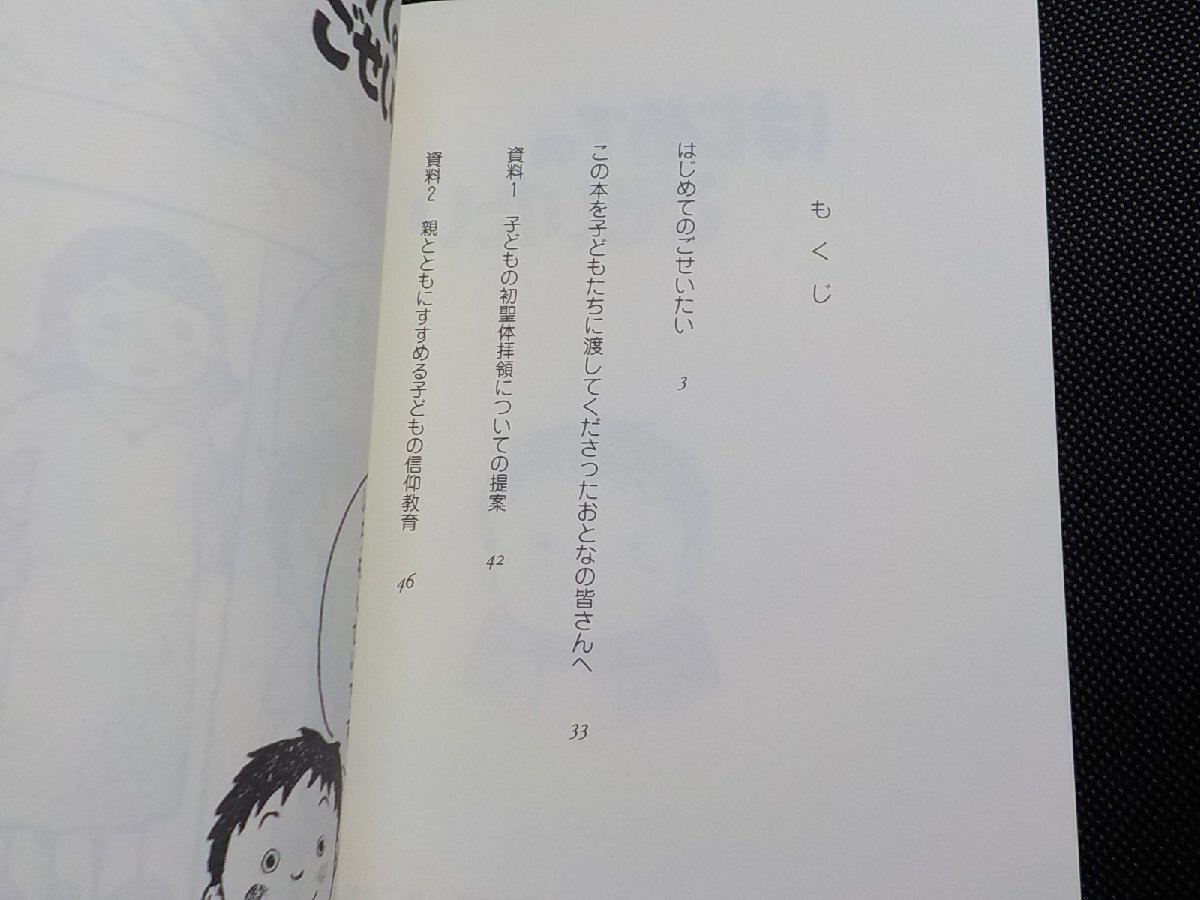 もくじ
はじめてのごせいたい 3
この本を子どもたちに渡してくださったおとなの皆さんへ 33
資料1 子どもの初聖体拝領についての提案 42
資料2 親とともにすすめる子どもの信仰教育 46
ごせい